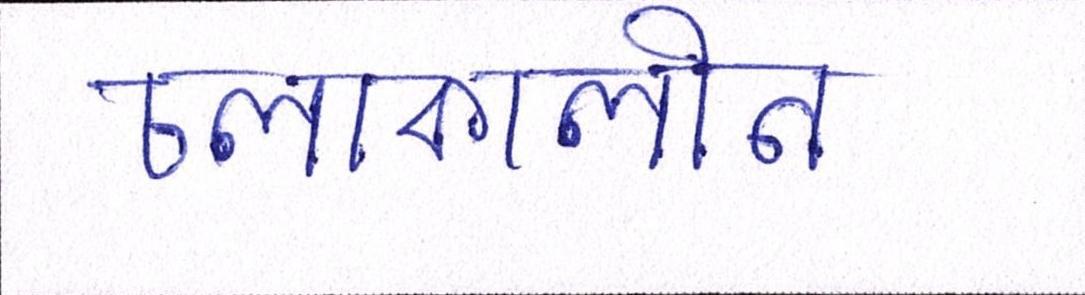 চলাকালীন